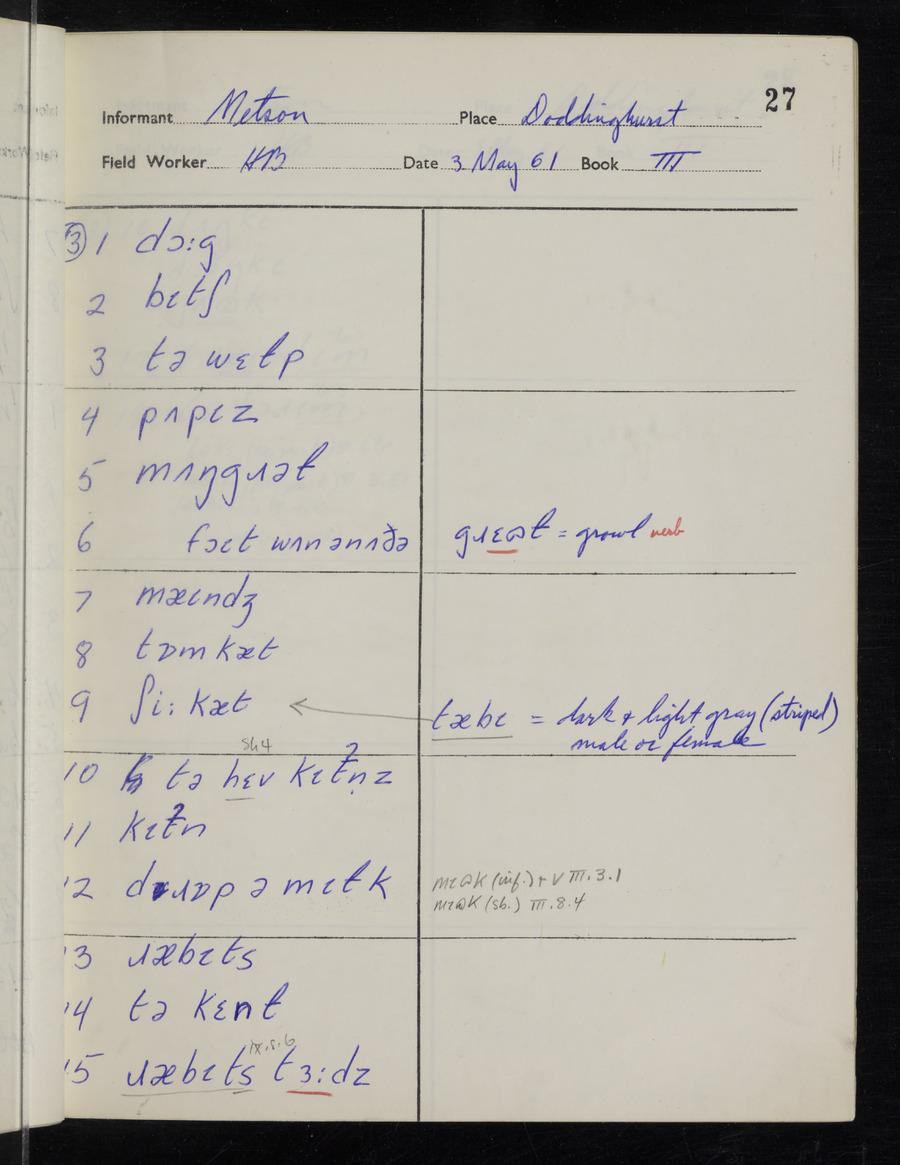 27
Informant Metson Place Doddinghurst
Field Worker HB Date 3 May 61 Book III
③ 1 dɔːg
2 bɩtʃ
3 tə wɛɫp
4 pʌpɩz
5 mʌŋgɹəɫ
6 fɔɩt wʌn ənʌðə gɹɛɷɫ = growl verb
7 mæɩndʒ
8 tɒmkæt
9 ʃiːkæt ← tæbɩ = dark & light gray (striped)
male or female
Sh4
10 tə hɛv kɩtʔn̩z
11 kɩtʔn
12 dɹɒp ə mɩɫk mɩɷk (inf.) + V III.3.1
mɩɷk (sb.) III.8.4
13 ɹæbɩts
14 tə kɛnɫ
IX.8.6
15 ɹæbɩts tɜːdz